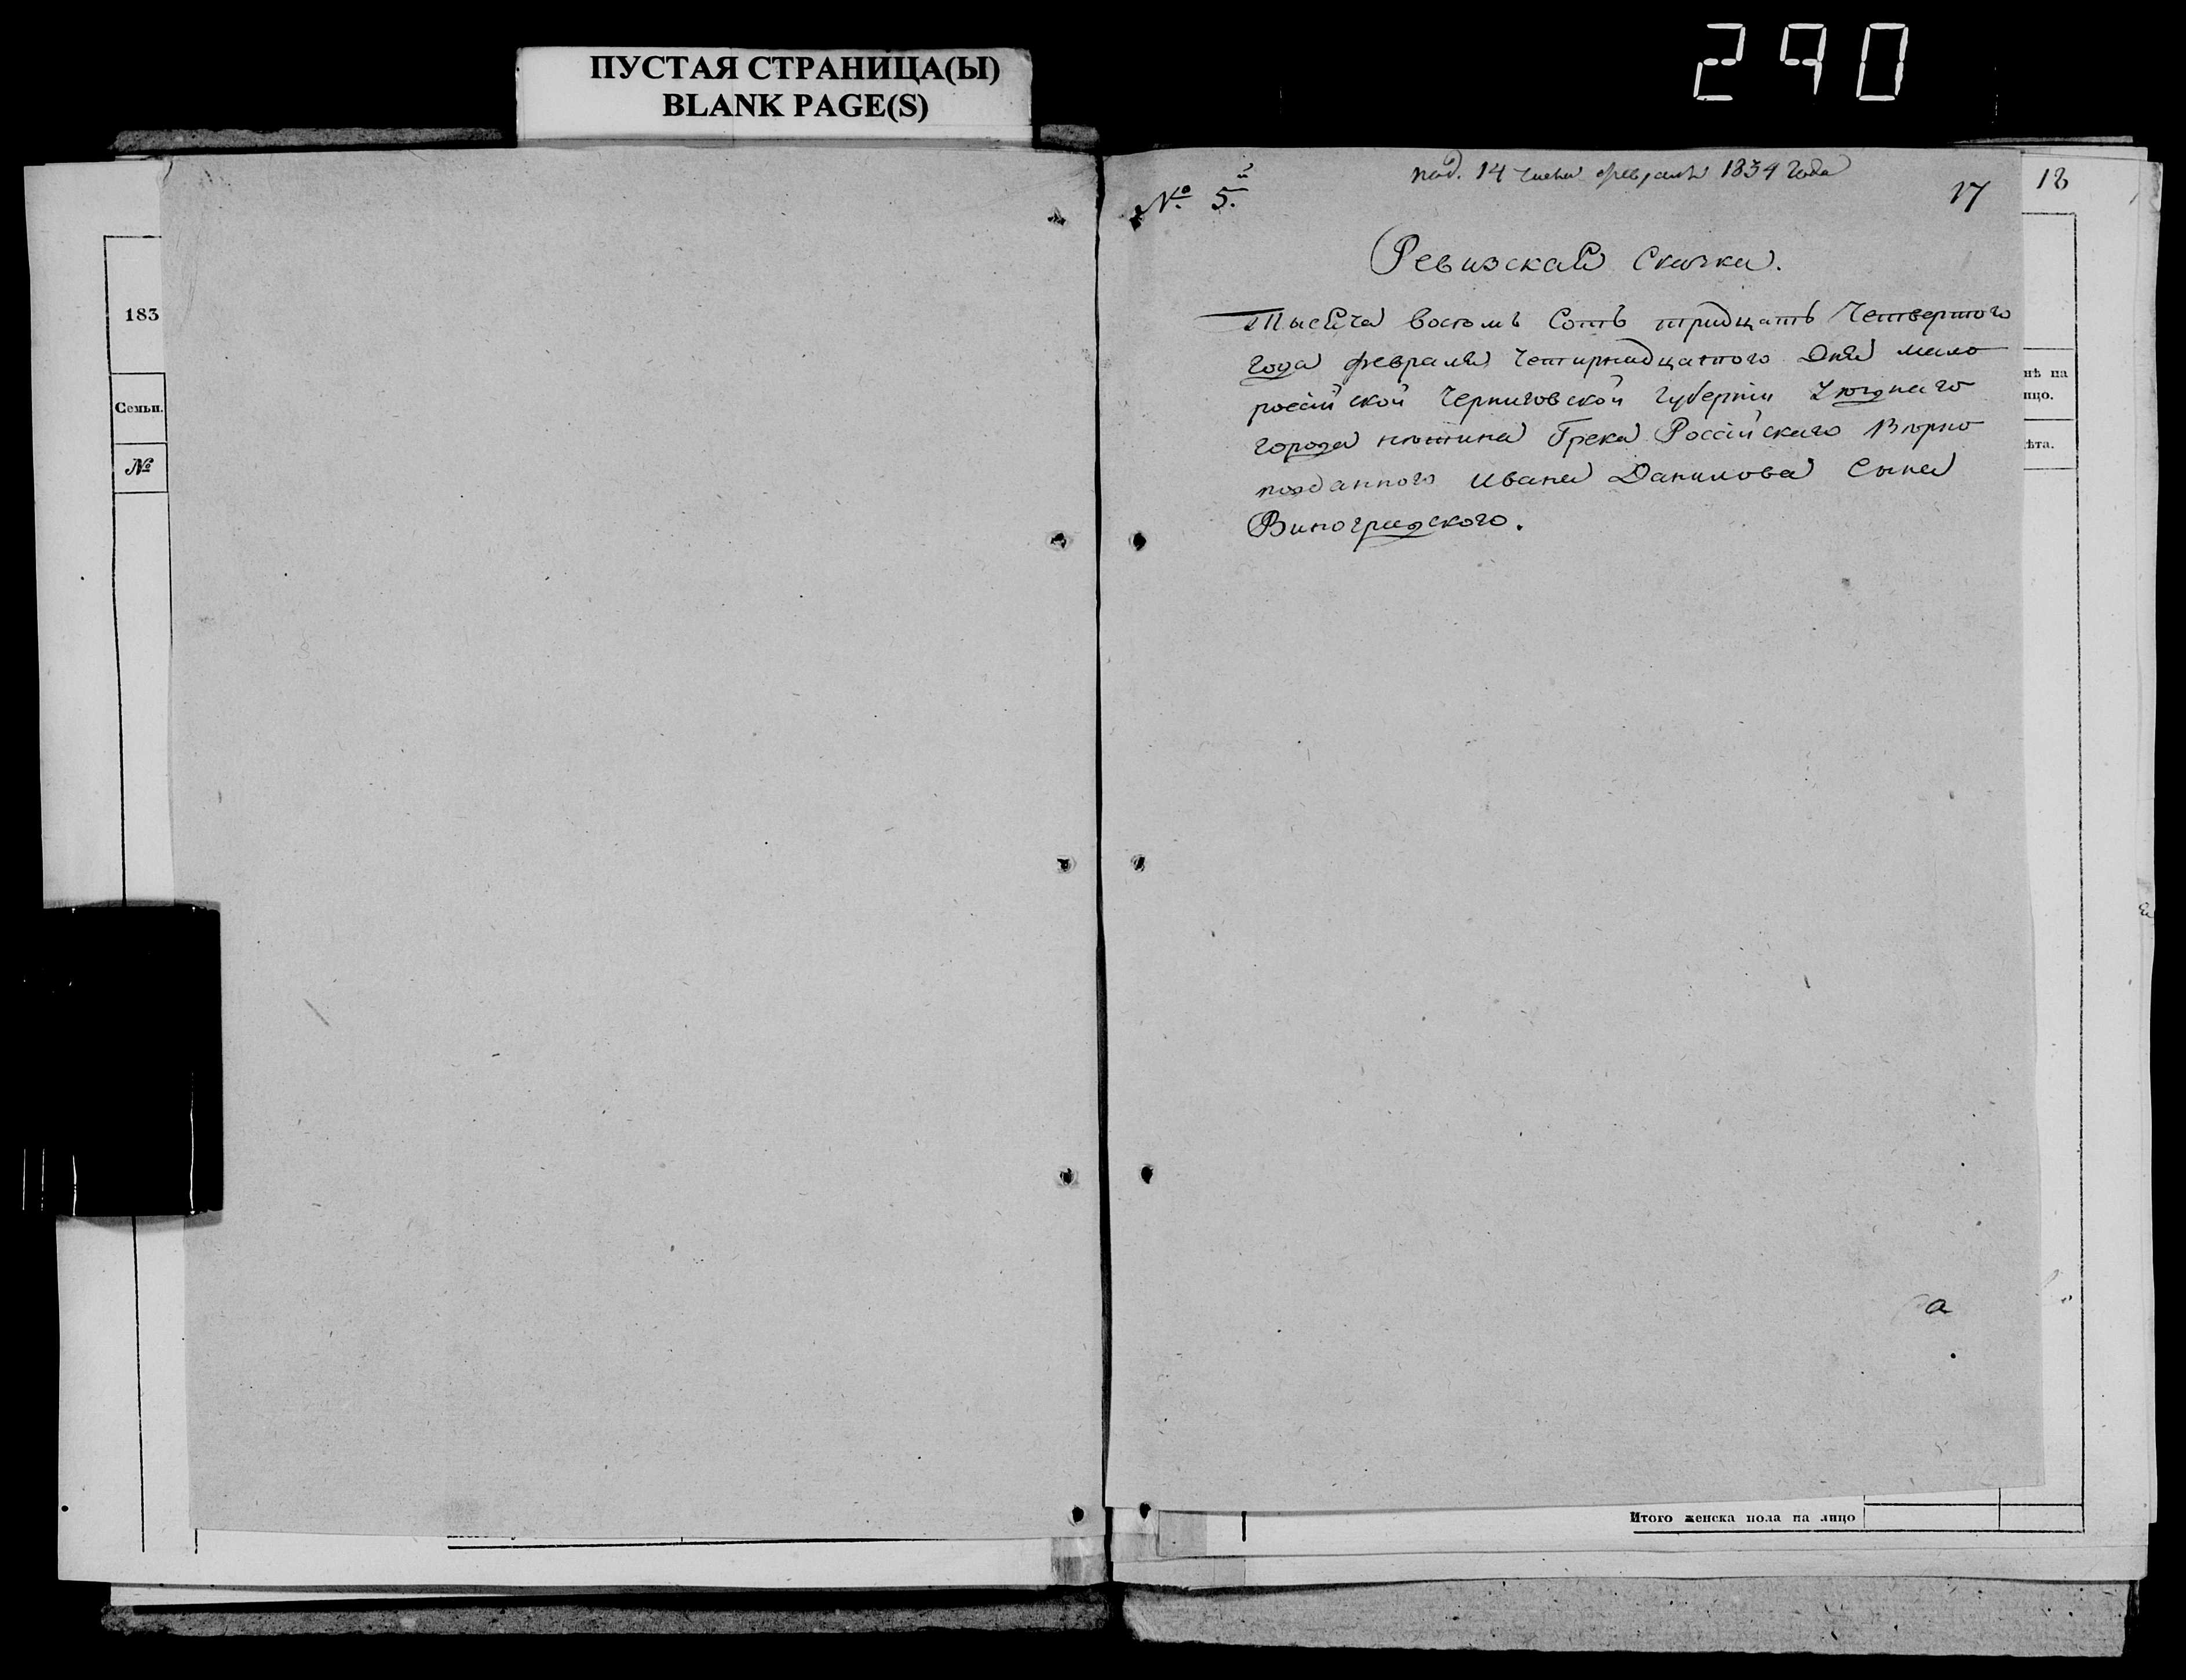 290
ПУСТАЯ СТРАНИЦА(Ы)
BLANK PAGE(S)
183
Семьи.
№
под. 14 числа февраля 1834 года
№ 5.й
17
18
Ревизская Сказка.
Тысяча восомъ Сотъ тридцать Четвертого
года февраля Четирнадцатого Дня мало
росийской Черниговской губернии Уюзднаго
города нюжина Грека Российскаго Вюрно
подданного ивана Данилова Сына
Виноградского.
нѣ на
ицо.
ѣта.
а
Итого женска пола на лицо